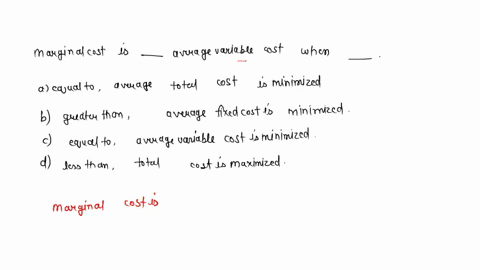 marginal cost is ___ average variable cost when ___.
a) equal to, average total cost is minimized
b) greater than, average fixed cost is minimized.
c) equal to, average variable cost is minimized.
d) less than, total cost is maximized.
marginal cost is